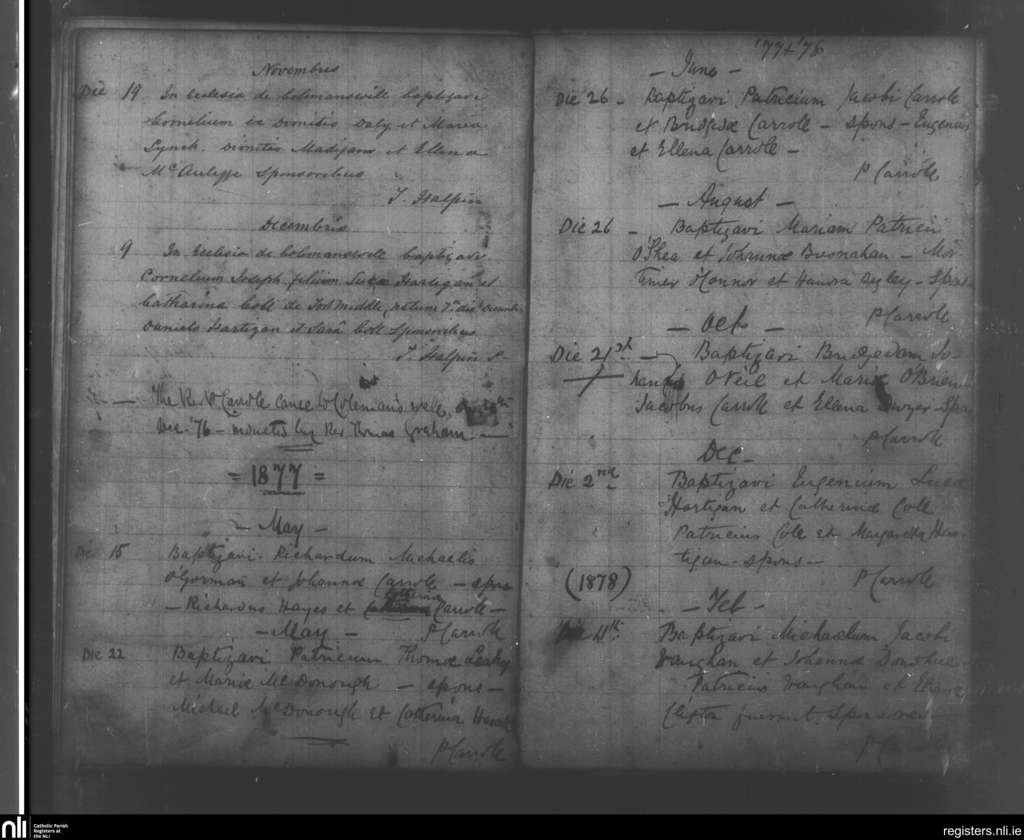 Novembris
Die 19 In Ecclesia de Colmanswell baptizavi
Cornelium ex Dionisio Daly et Maria
Lynch. Dionisio Madigan et Ellena
McAuliffe Sponsoribus
T. Halpin
Decembris
9 In Ecclesia de Colmanswell baptizavi
Cornelium Joseph filium Luca Hartigan et
Catharina Coll de Fort Middle, natum 7a die Decembris
Daniele Hartigan et Sara Coll Sponsoribus
T. Halpin P.
The Rev P Carroll came to Coleman's well,
Dec. '76 - inducted by Rev Thomas Graham. —
= 1877 =
- May -
Die 15 Baptizavi Richardum Michaelis
O'Gorman et Johannæ Carroll - spns
- Richardus Hayes et Catherina Carroll -
P Carroll
- May -
Die 22 Baptizavi Patricium Thomæ Leahy
et Mariæ McDonough - spons -
Michael McDonough et Catherina
P Carroll
'77 + '78
- June -
Die 26 - Baptizavi Patricium Jacobi Carroll
et Bridgidæ Carroll - spons - Eugenius
et Ellena Carroll -
P Carroll
- August -
Die 26 - Baptizavi Mariam Patricii
O'Shea et Johannæ Bresnahan - Mor
timer O'Connor et Hanora Agley - Spns
P Carroll
- Oct -
Die 21st - Baptizavi Bridgidam Jo-
hannis O'Neil et Mariæ O'Brien
Jacobus Carroll et Ellena Dwyer - Spns
P Carroll
Dec -
Die 2nd Baptizavi Eugenium Lucæ
Hartigan et Catherinæ Coll
Patricius Cole et Margaretta Har-
tigan - spons -
P Carroll
(1878)
- Feb -
Die 11th Baptizavi Michaelum Jacobi
Vaughan et Johannæ Donohue -
Patricius Vaughan et
Clifton fuerunt Sponsores
P Carroll
nli
Catholic Parish
Registers at
the NLI
registers.nli.ie